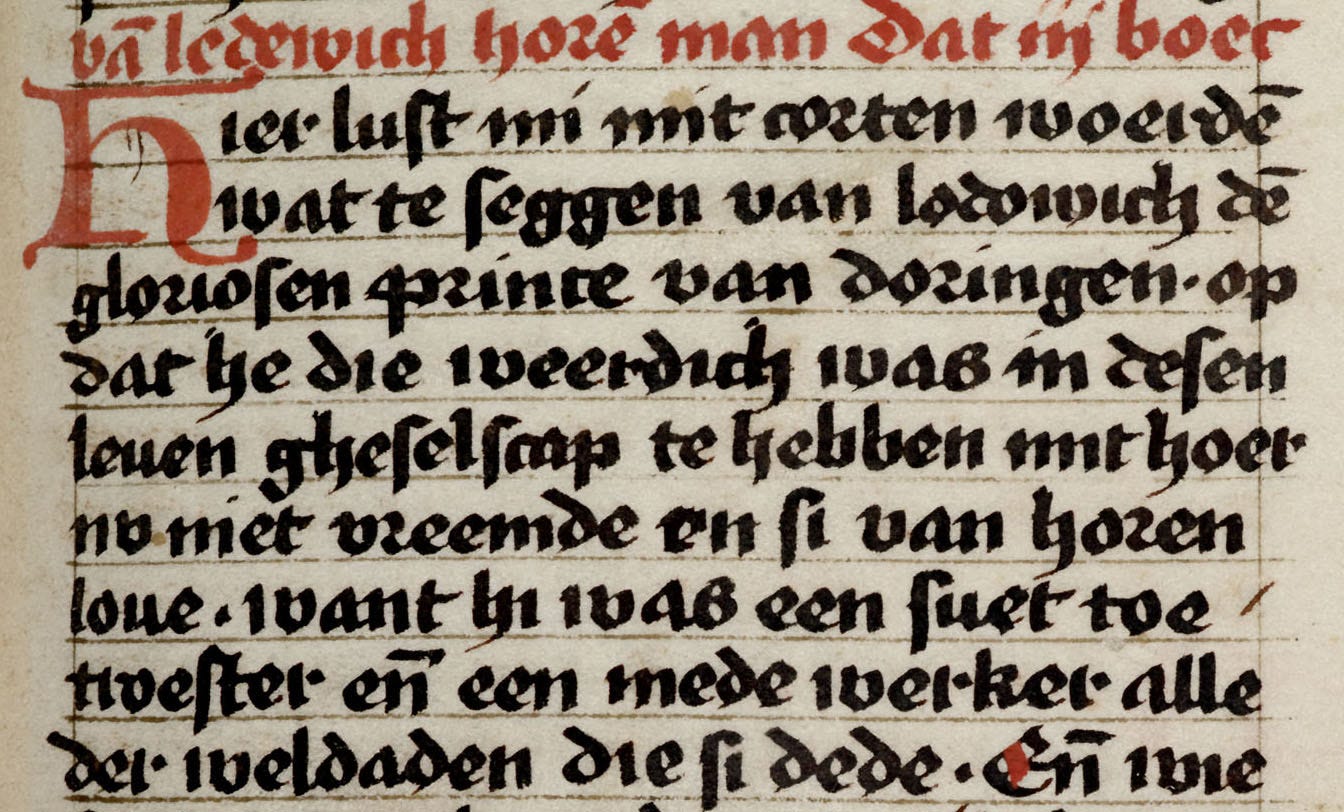 vā ledewich horē man Dat iij boec
Hier lust mi mit corten woerdē
wat te seggen van lodowich dē
gloriosen prince van doringen · op
dat he die weerdich was in desen
leuen gheselscap te hebben mit hoer
nv niet vreemde en si van horen
loue · want hi was een suet toe
twester en̄ een mede werker alle
der weldaden die si dede · En̄ wie